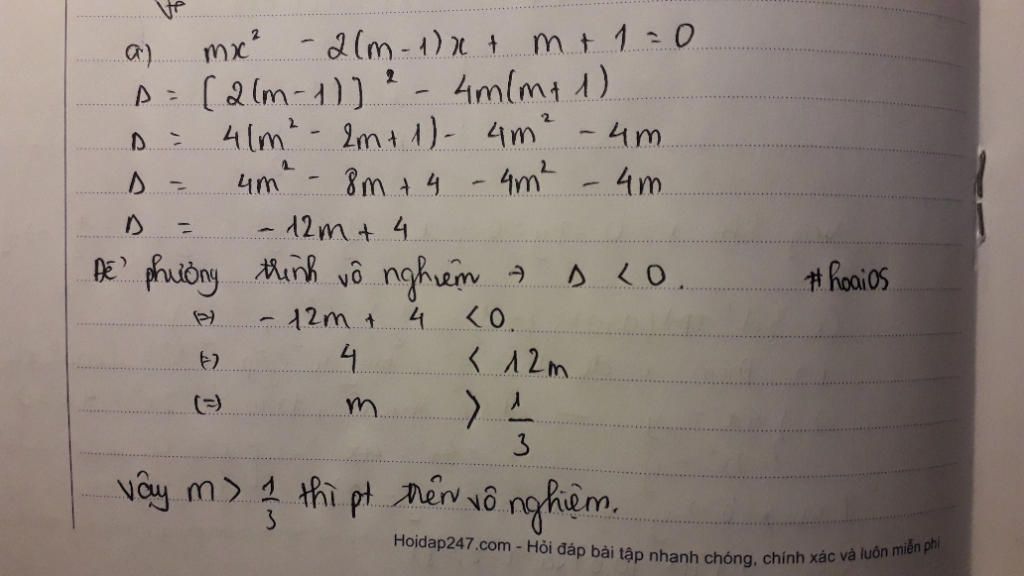 a) mx² - 2(m-1)x + m + 1 = 0
Δ = [2(m-1)]² - 4m(m+1)
Δ = 4(m² - 2m + 1) - 4m² - 4m
Δ = 4m² - 8m + 4 - 4m² - 4m
Δ = -12m + 4
Để phương trình vô nghiệm → Δ < 0. #hoai05
(=) -12m + 4 < 0.
(=) 4 < 12m
(=) m > 1/3
Vậy m > 1/3 thì pt trên vô nghiệm.
Hoidap247.com - Hỏi đáp bài tập nhanh chóng, chính xác và luôn miễn phí